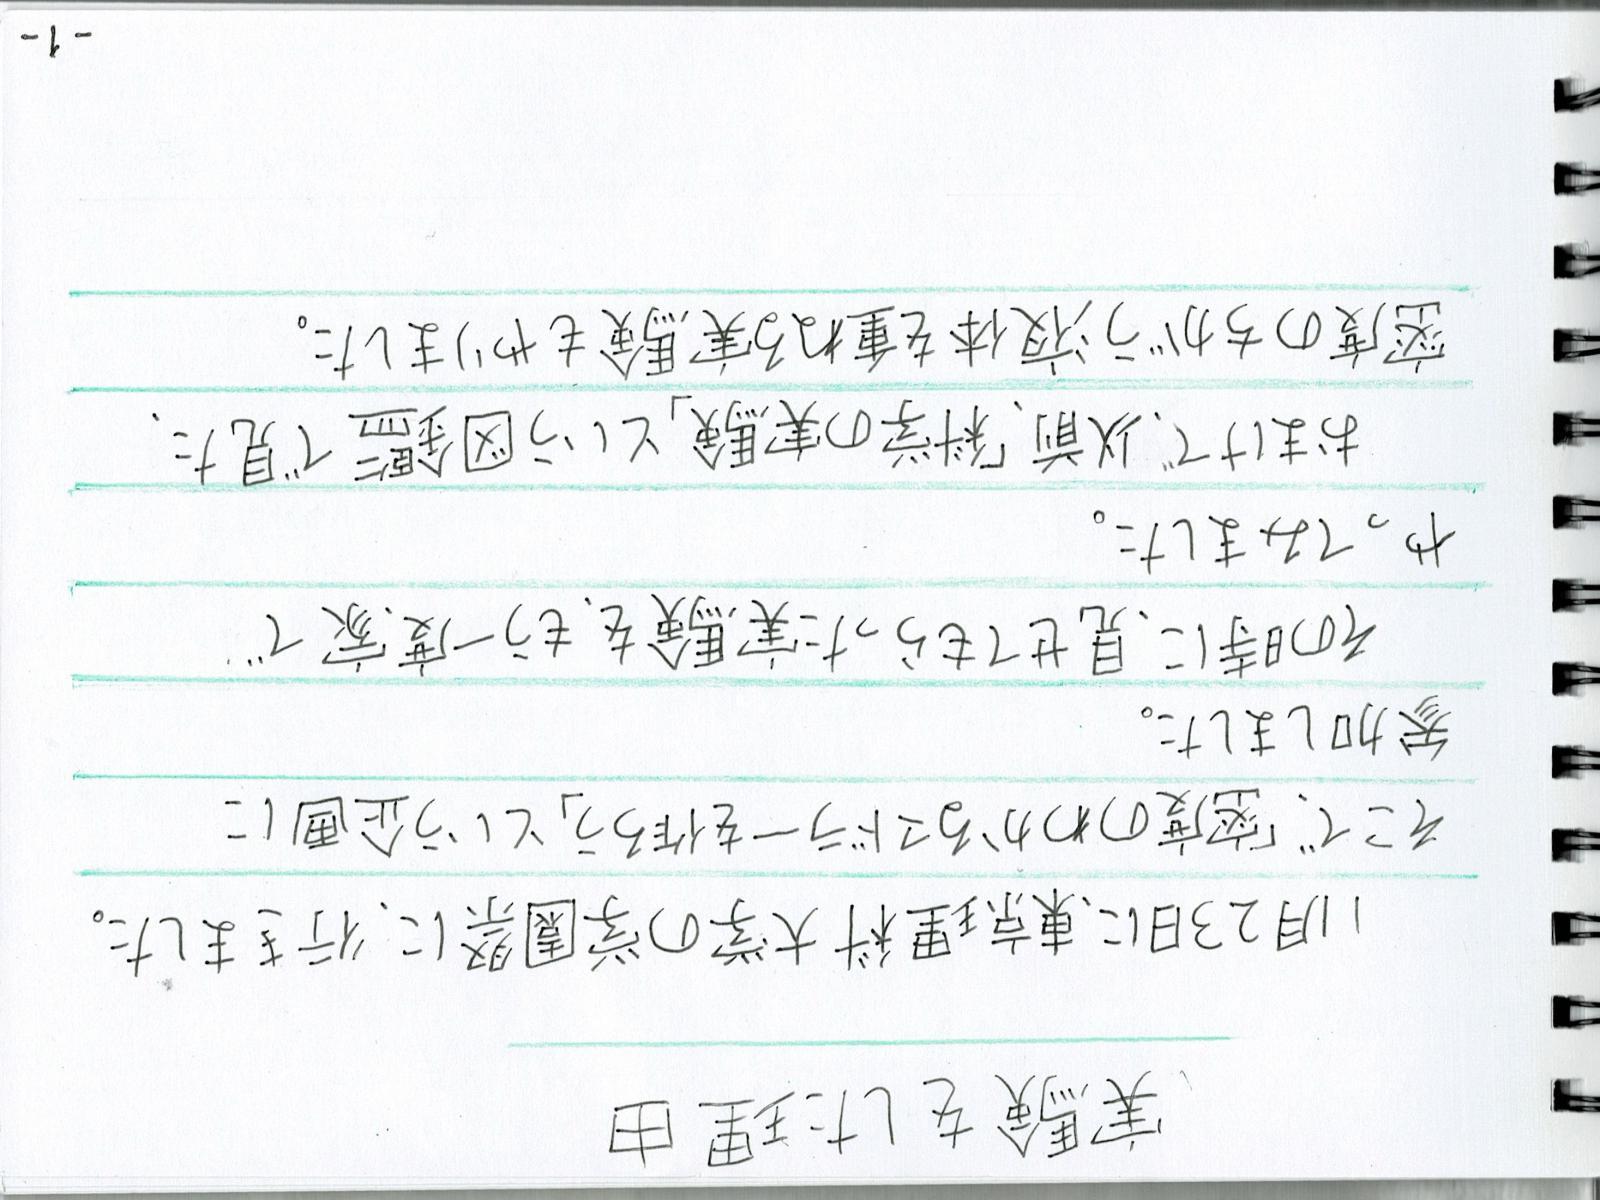 実験をした理由
11月23日に、東京理科大学の学園祭に、行きました。
そこで、「密度のわかるコドラーを作ろう」という企画に
参加しました。
その時に、見せてもらった実験を、もう一度、家で
やってみました。
おまけで、以前、「科学の実験」という図鑑で見た、
密度のちがう液体を重ねる実験もやりました。
-1-